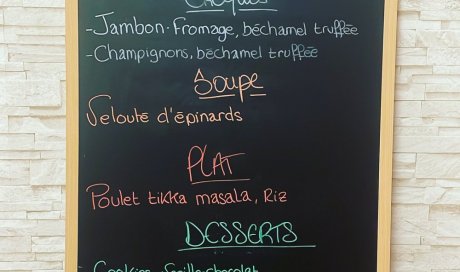 Croques
-Jambon-Fromage, béchamel truffée
-Champignons, béchamel truffée
Soupe
Velouté d'épinards
PLAT
Poulet tikka masala, Riz
DESSERTS
Cookies vanille chocolat